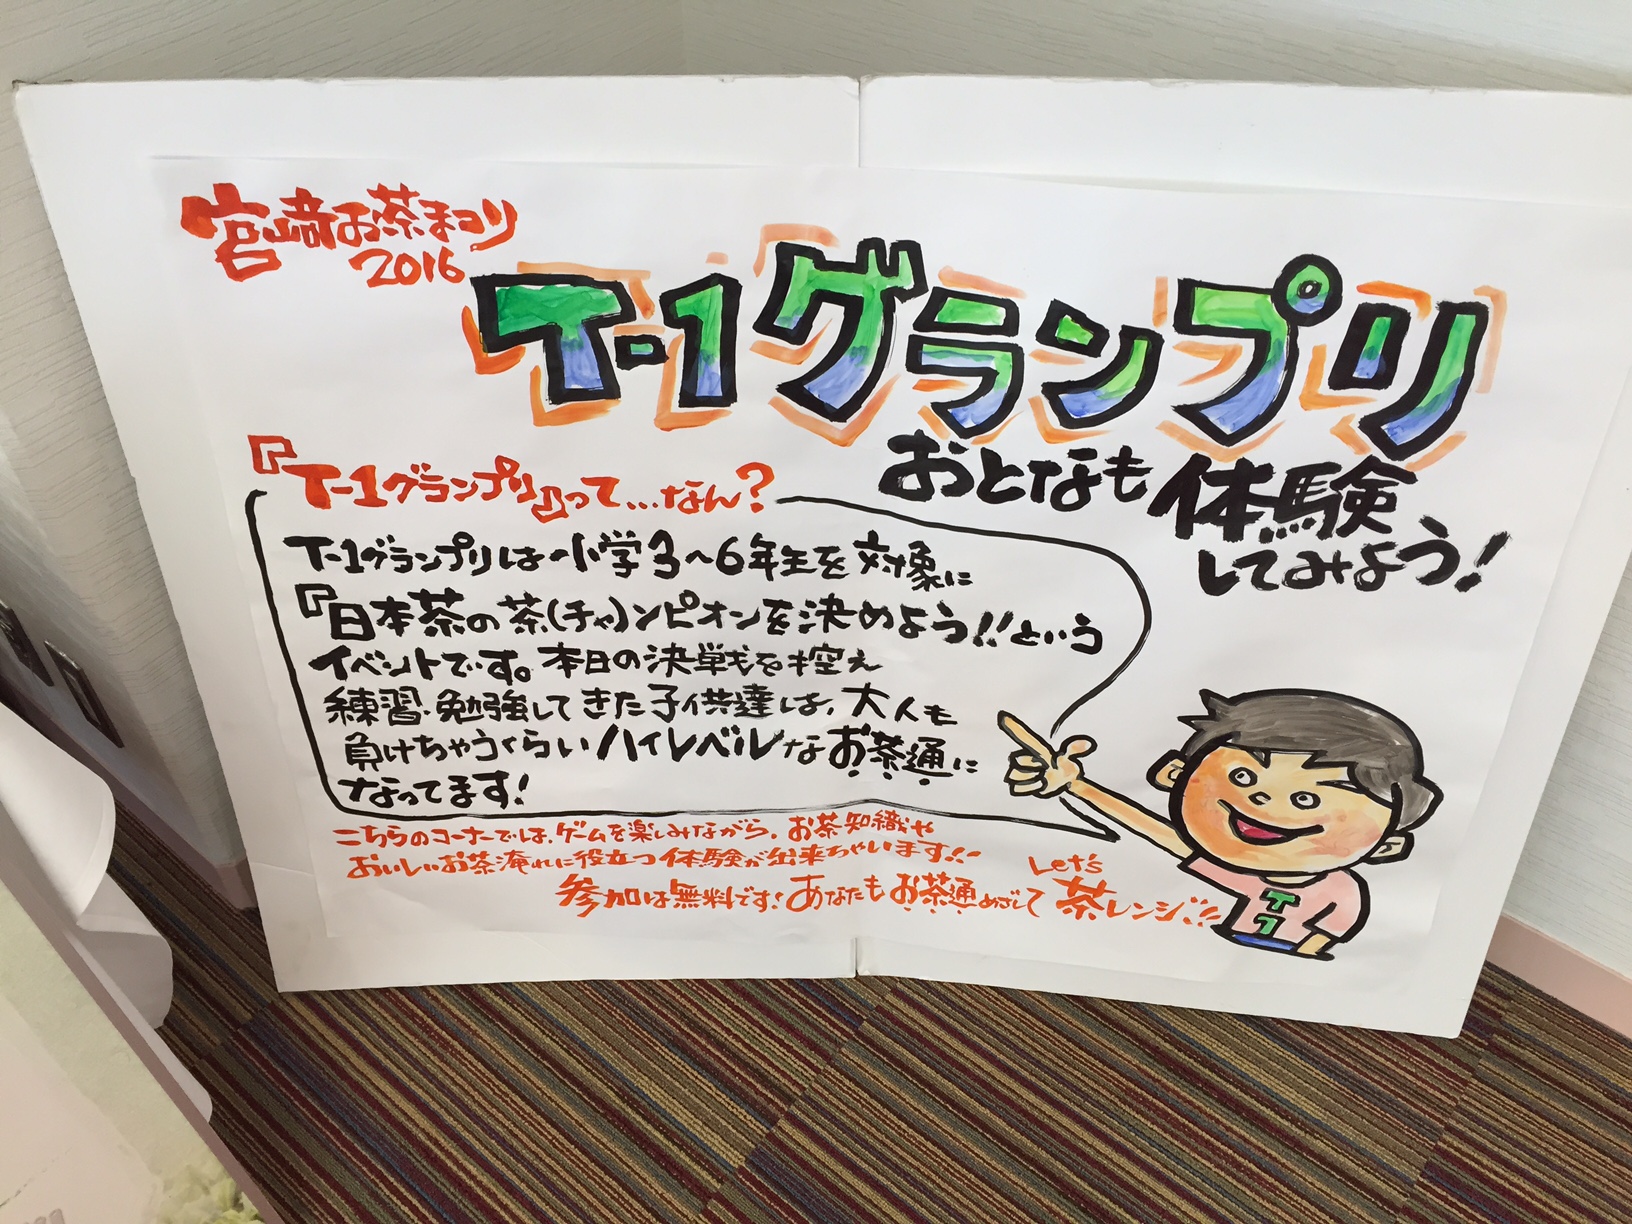 宮崎お茶まつり
2016
T-1グランプリ
おとなも体験
してみよう!
『T-1グランプリ』って…なん?
T-1グランプリは小学3〜6年生を対象に
『日本茶の茶(チャ)ンピオンを決めよう!!という
イベントです。本日の決戦を控え
練習・勉強してきた子供達は、大人も
負けちゃうくらいハイレベルなお茶通に
なってます!
こちらのコーナーでは、ゲームを楽しみながら、お茶知識や
おいしいお茶淹れに役立つ体験が出来ちゃいます!!
参加は無料です!あなたもお茶通めざして Let's 茶レンジ!!
T-1